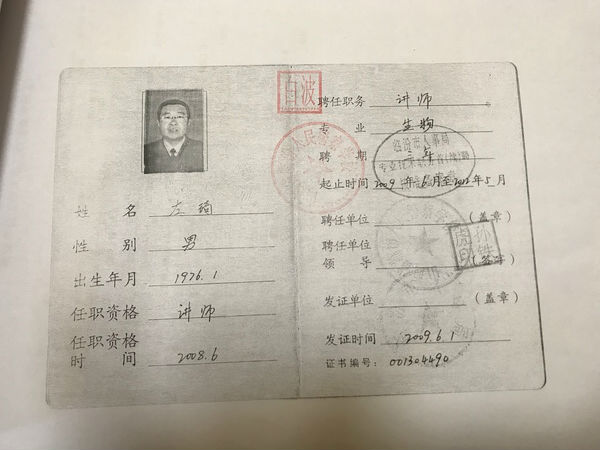 姓名 左瑞
性别 男
出生年月 1976.1
任职资格 讲师
任职资格
时间 2008.6
白波
聘任职务 讲师
专业 生物
聘期 三年
起止时间 2009年6月至2012年5月
临汾市人事局
聘任单位 (盖章)
聘任单位
领导
发证单位 (盖章)
发证时间 2009.6.1
证书编号: 001304490